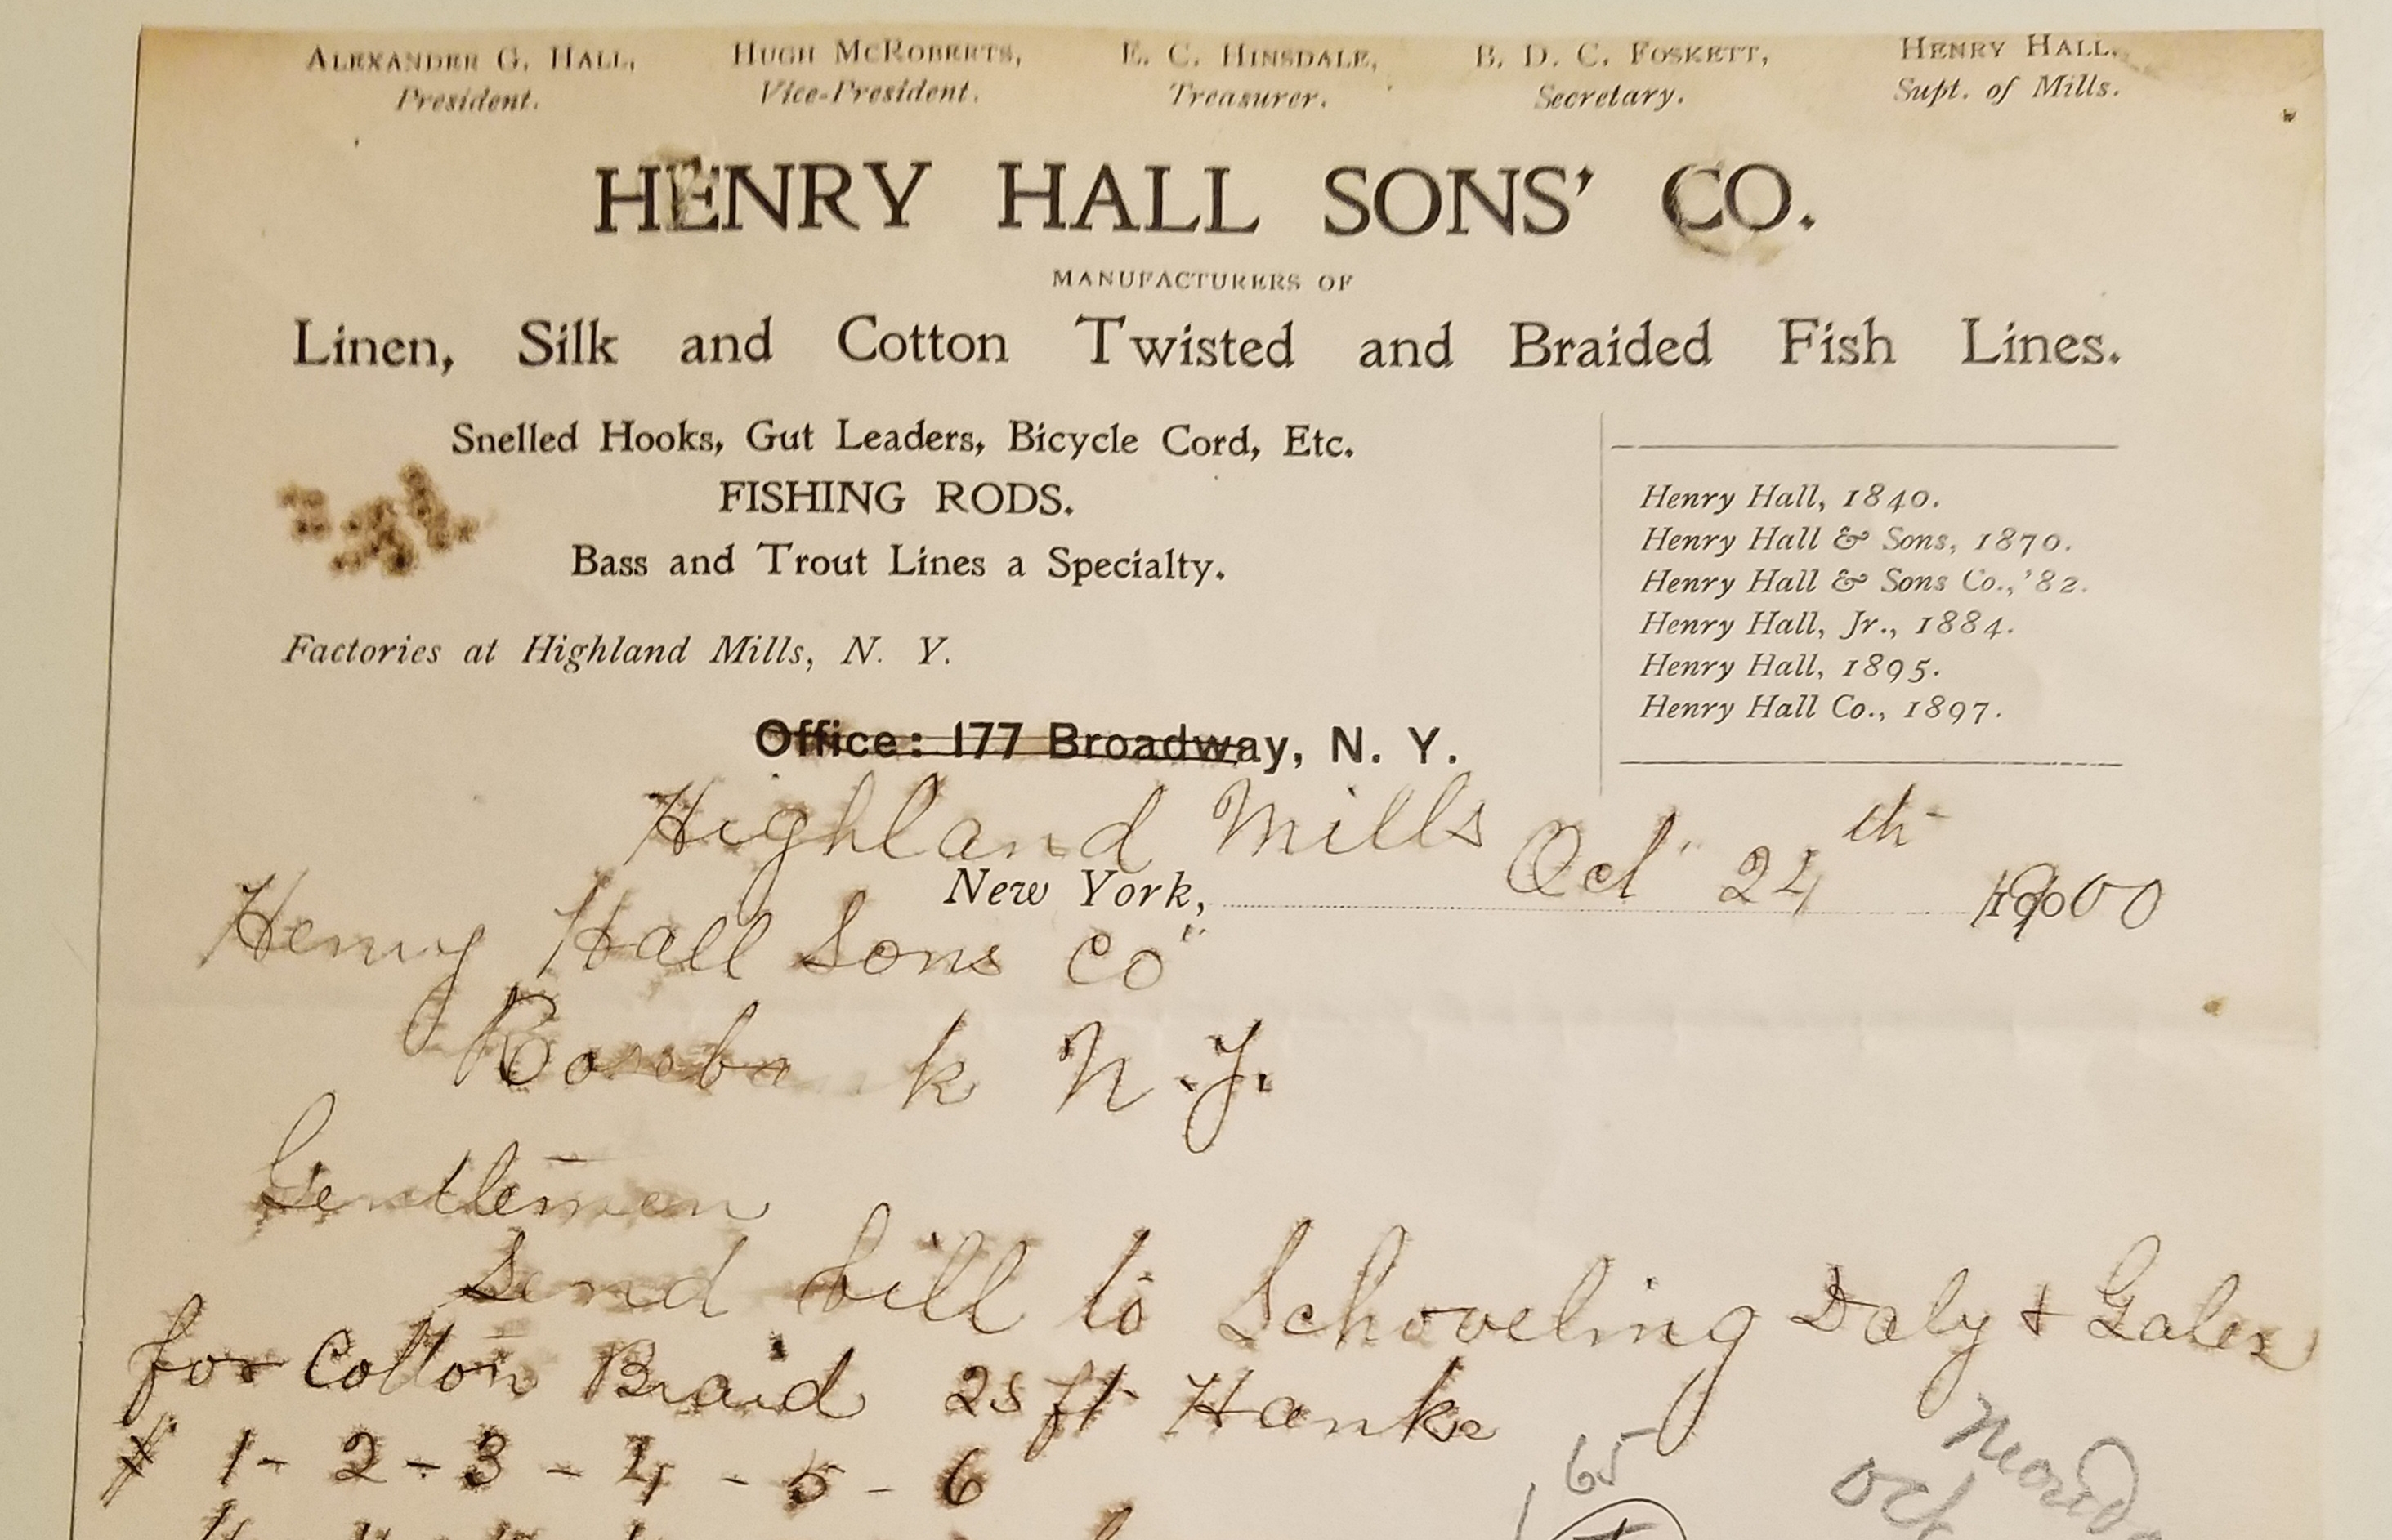 ALEXANDER G. HALL, President.
HUGH MCROBERTS, Vice-President.
E. C. HINSDALE, Treasurer.
B. D. C. FOSKETT, Secretary.
HENRY HALL, Supt. of Mills.
HENRY HALL SONS' CO.
MANUFACTURERS OF
Linen, Silk and Cotton Twisted and Braided Fish Lines.
Snelled Hooks, Gut Leaders, Bicycle Cord, Etc.
FISHING RODS.
Bass and Trout Lines a Specialty.
Factories at Highland Mills, N. Y.
Henry Hall, 1840.
Henry Hall & Sons, 1870.
Henry Hall & Sons Co., '82.
Henry Hall, Jr., 1884.
Henry Hall, 1895.
Henry Hall Co., 1897.
Office: 177 Broadway, N. Y.
Highland Mills Oct 24th
New York, 1900
Henry Hall Sons Co
Rosebank N.Y.
Gentlemen
Send bill to Schoveling Daly & Gales
for Cotton Braid 25 ft Hanks
# 1 - 2 - 3 - 4 - 5 - 6
65
Oct